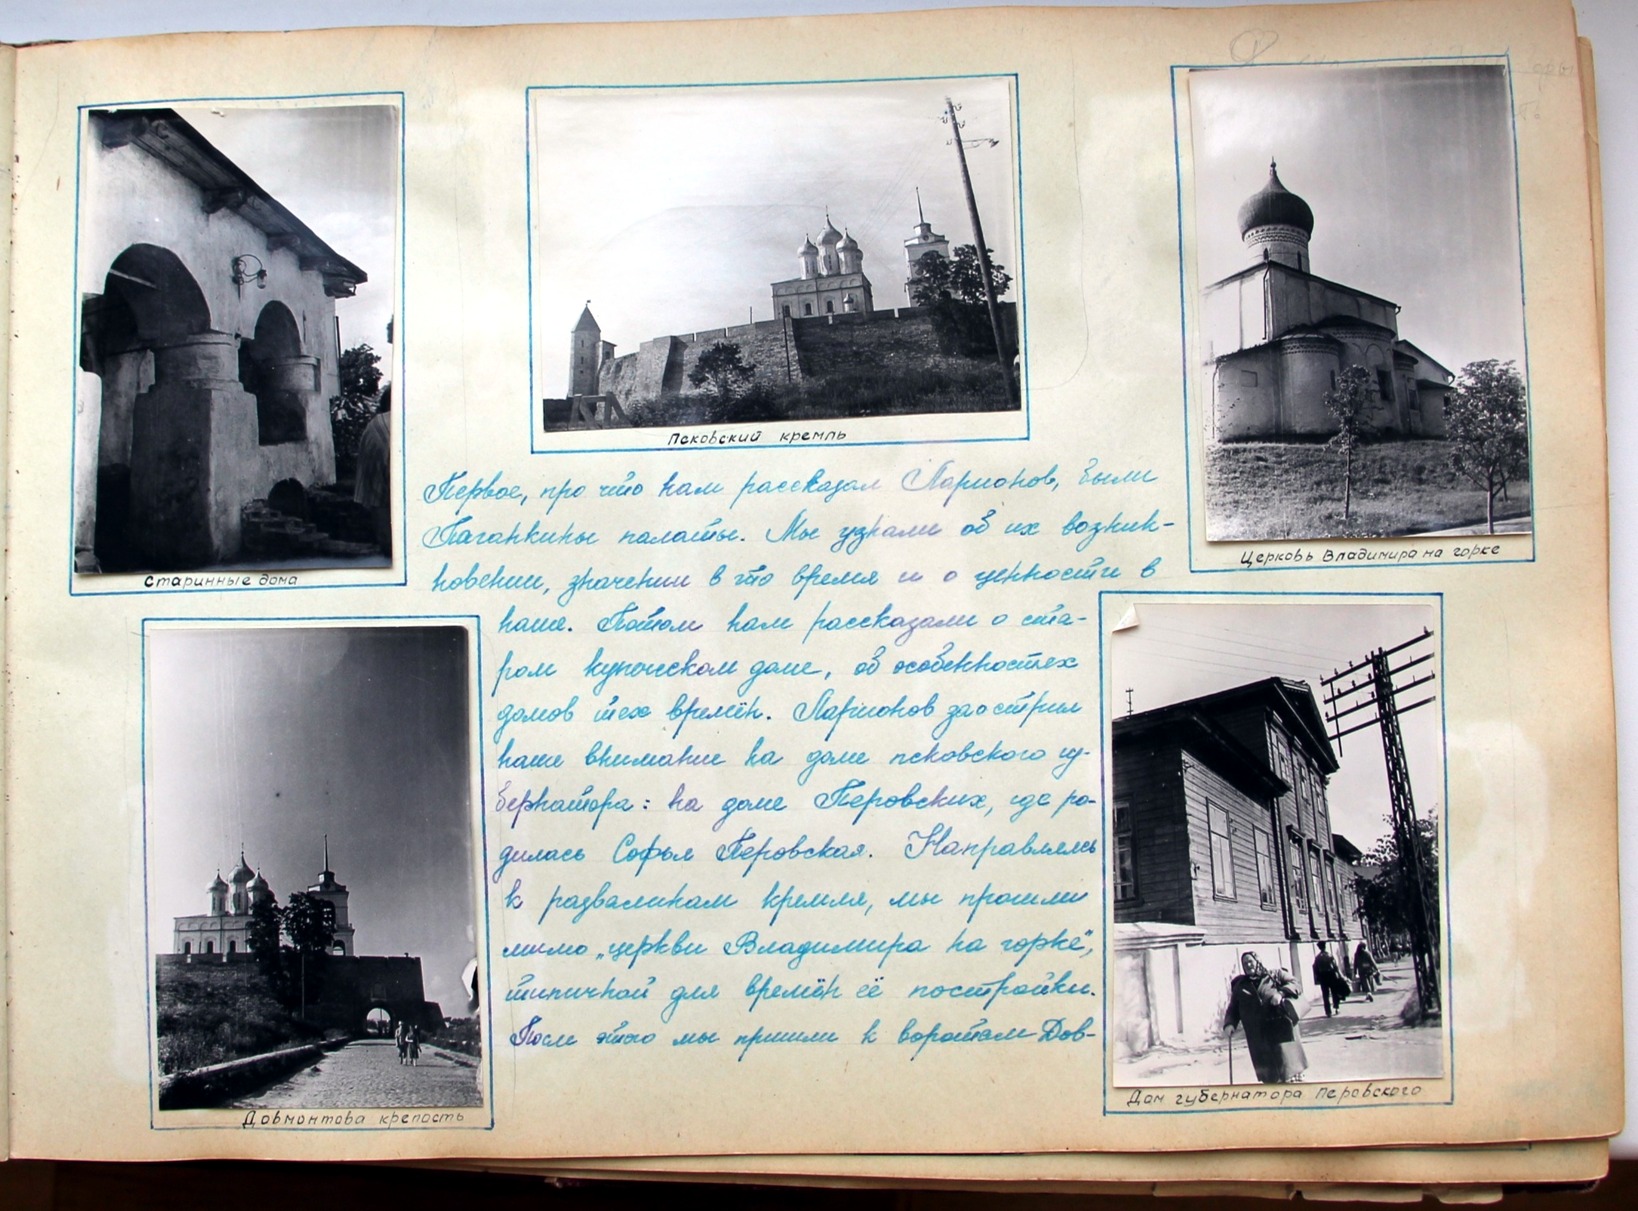 Старинные дома
Псковский кремль
Церковь Владимира на горке
Первое, про что нам рассказал Ларионов, были
Поганкины палаты. Мы узнали об их возник-
новении, значении в то время и о ценности в
наше. Потом нам рассказали о ста-
ром купеческом доме, об особенностях
домов тех времён. Ларионов заострил
наше внимание на доме псковского гу-
бернатора: на доме Перовских, где ро-
дилась Софья Перовская. Направляясь
к развалинам кремля, мы прошли
мимо „церкви Владимира на горке",
типичной для времён её постройки.
После этого мы пришли к воротам Дов-
Довмонтова крепость
Дом губернатора Перовского